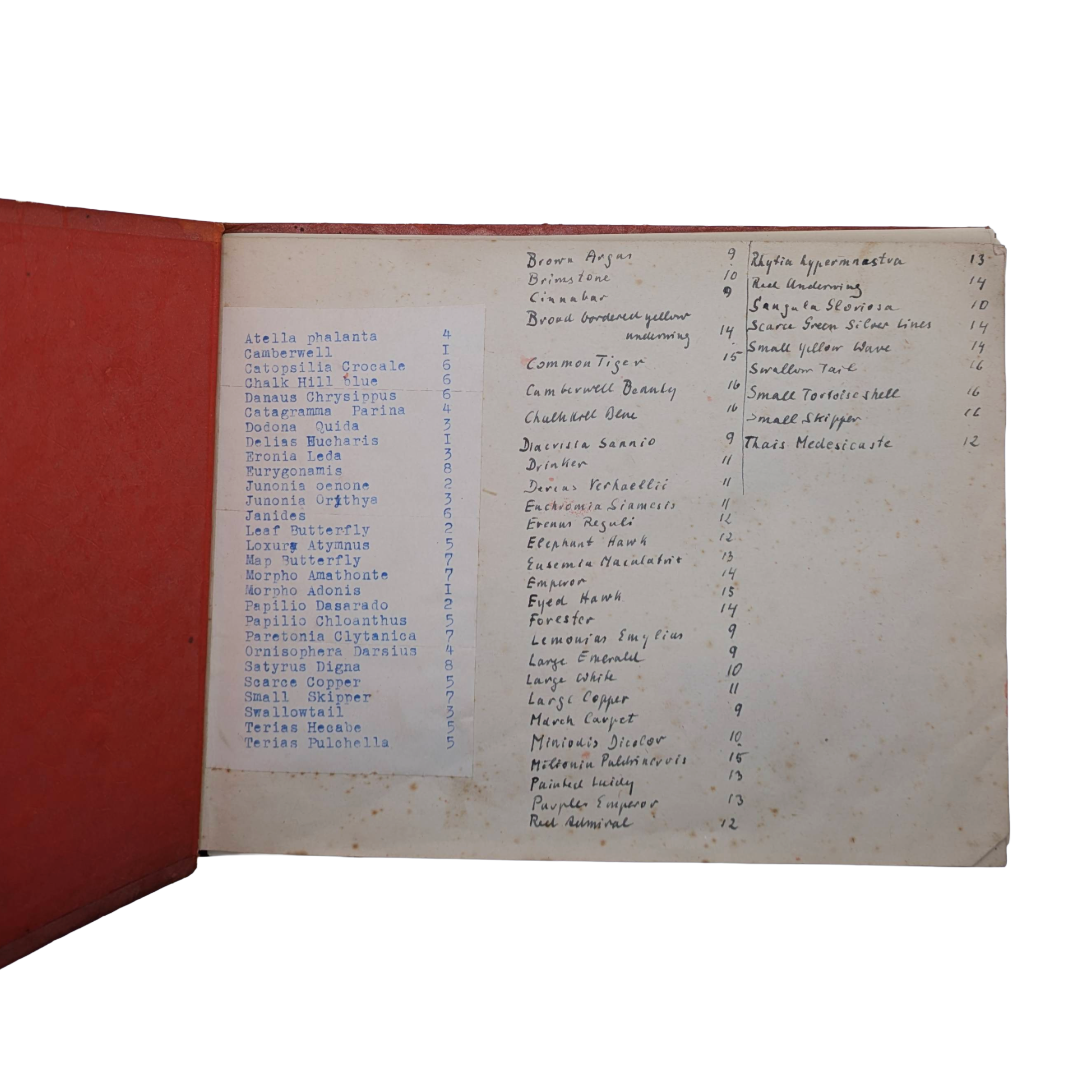 Atella phalanta 4
Camberwell I
Catopsilia Crocale 6
Chalk Hill blue 6
Danaus Chrysippus 6
Catagramma Parina 4
Dodona Quida 3
Delias Hucharis I
Eronia Leda 3
Eurygonamis 8
Junonia oenone 2
Junonia Orithya 3
Janides 6
Leaf Butterfly 2
Loxura Atymnus 5
Map Butterfly 7
Morpho Amathonte 7
Morpho Adonis I
Papilio Dasarado 2
Papilio Chloanthus 5
Paretonia Clytanica 7
Ornisophera Darsius 4
Satyrus Digna 8
Scarce Copper 5
Small Skipper 7
Swallowtail 3
Terias Hecabe 5
Terias Pulchella 5
Brown Argus 9
Brimstone 10
Cinnabar 9
Broad bordered yellow
underwing 14
Common Tiger 15
Camberwell Beauty 16
Chalkhill 16
Diacrisia Sannio 9
Drinker 11
Dercas Verhaellii 11
Euchromia Siamesis 11
Erenus Reguli 12
Elephant Hawk 12
Eusemia Maculatrix 13
Emperor 14
Eyed Hawk 15
Forester 14
Lemonias Emylius 9
Large Emerald 9
Large White 10
Large Copper 11
March Carpet 9
Miniodis Dicolor 10
Miltonia 15
Painted Laidy 13
Purples Emperor 13
Red Admiral 12
Rhytia hypermnastra 13
Red Underwing 14
Sangula Gloriosa 10
Scarce Green Silver Lines 14
Small Yellow Wave 14
Swallow Tail 16
Small Tortoiseshell 16
Small Skipper 16
Thais Medesicaste 12